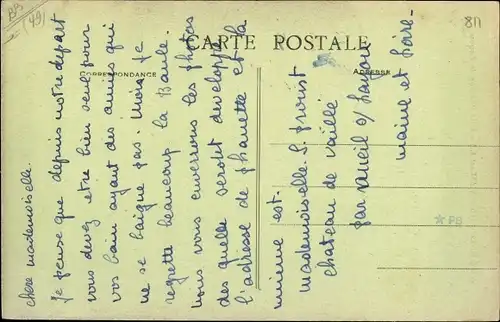 BPS
(49)
811
CARTE POSTALE
CORRESPONDANCE
ADRESSE
chere mademoiselle.
je pense que depuis notre depart
vous devez etre bien seul pour
vos bain ayant des amies qui
ne se baigne pas. Mois je
regrette beaucoup la Baule.
nous vous enverrons les photos
des quelle seront developpe
l'adresse de phanette et la
mienne est.
mademoiselle. S. Proust
chateau de vaillé
par rueil s/ Layon
maine et Loire-
PB